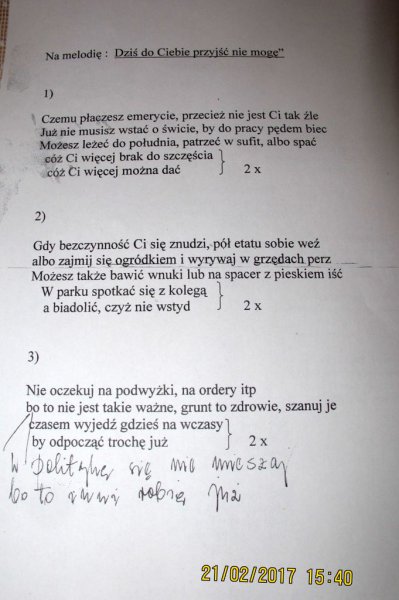 Na melodię : Dziś do Ciebie przyjść nie mogę"
1)
Czemu płaczesz emerycie, przecież nie jest Ci tak źle
Już nie musisz wstać o świcie, by do pracy pędem biec
Możesz leżeć do południa, patrzeć w sufit, albo spać
cóż Ci więcej brak do szczęścia
cóż Ci więcej można dać 2 x
2)
Gdy bezczynność Ci się znudzi, pół etatu sobie weź
albo zajmij się ogródkiem i wyrywaj w grzędach perz
Możesz także bawić wnuki lub na spacer z pieskiem iść
W parku spotkać się z kolegą
a biadolić, czyż nie wstyd 2 x
3)
Nie oczekuj na podwyżki, na ordery itp
bo to nie jest takie ważne, grunt to zdrowie, szanuj je
czasem wyjedź gdzieś na wczasy
by odpocząć trochę już 2 x
W politykę się nie mieszaj
bo to inni robią już
21/02/2017 15:40